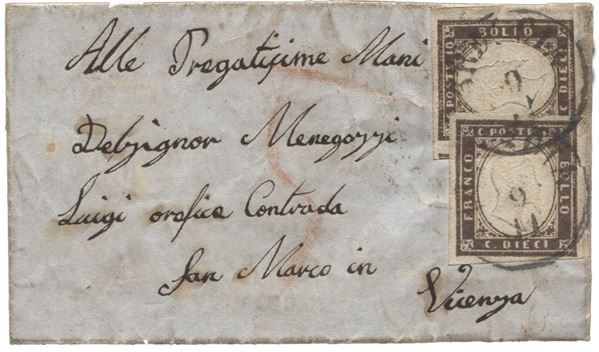 Alle Pregatissime Mani
Delsignor Menegozzi
Luigi orefice Contrada
San Marco in
Vicenza
BOLLO
POSTALE
C. DIECI
C. POSTE
FRANCO
BOLLO
C. DIECI
9
9